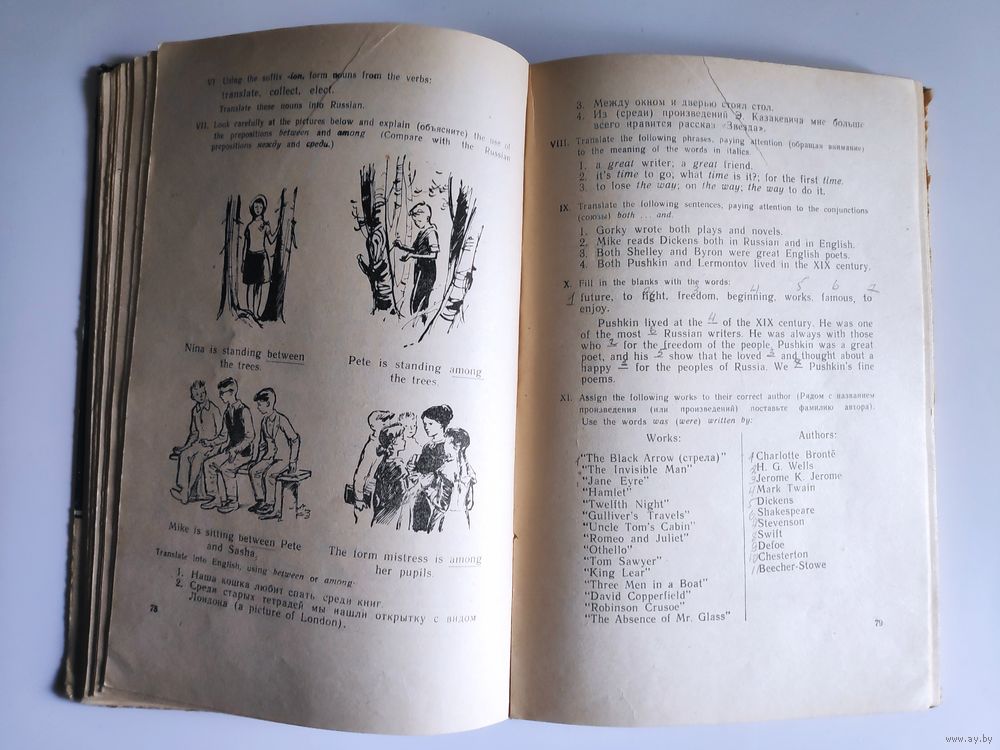 VI. Using the suffix -ion, form nouns from the verbs:
translate, collect, elect.
Translate these nouns into Russian.
VII. Look carefully at the pictures below and explain (объясните) the use of
the prepositions between and among (Compare with the Russian
prepositions между and среди.)
Nina is standing between
the trees.
Pete is standing among
the trees.
Mike is sitting between Pete
and Sasha.
The form mistress is among
her pupils.
Translate into English, using between or among.
1. Наша кошка любит спать среди книг.
2. Среди старых тетрадей мы нашли открытку с видом
Лондона (a picture of London).
78
3. Между окном и дверью стоял стол.
4. Из (среди) произведений Э. Казакевича мне больше
всего нравится рассказ «Звезда».
VIII. Translate the following phrases, paying attention (обращая внимание)
to the meaning of the words in italics.
1. a great writer; a great friend.
2. it's time to go; what time is it?; for the first time.
3. to lose the way; on the way; the way to do it.
IX. Translate the following sentences, paying attention to the conjunctions
(союзы) both ... and.
1. Gorky wrote both plays and novels.
2. Mike reads Dickens both in Russian and in English.
3. Both Shelley and Byron were great English poets.
4. Both Pushkin and Lermontov lived in the XIX century.
X. Fill in the blanks with the words:
3 4 5 6 7
1 future, to fight, freedom, beginning, works, famous, to
enjoy.
Pushkin lived at the 4 of the XIX century. He was one
of the most 6 Russian writers. He was always with those
who 2 for the freedom of the people. Pushkin was a great
poet, and his show that he loved 3 and thought about a
happy 1 for the peoples of Russia. We Pushkin's fine
poems.
XI. Assign the following works to their correct author (Рядом с названием
произведения (или произведений) поставьте фамилию автора).
Use the words was (were) written by:
Works:
"The Black Arrow (стрела)"
"The Invisible Man"
"Jane Eyre"
"Hamlet"
"Twelfth Night"
"Gulliver's Travels"
"Uncle Tom's Cabin"
"Romeo and Juliet"
"Othello"
"Tom Sawyer"
"King Lear"
"Three Men in a Boat"
"David Copperfield"
"Robinson Crusoe"
"The Absence of Mr. Glass"
Authors:
1 Charlotte Brontë
2 H. G. Wells
3 Jerome K. Jerome
4 Mark Twain
5 Dickens
6 Shakespeare
7 Stevenson
8 Swift
9 Defoe
10 Chesterton
11 Beecher-Stowe
79
www.ay.by